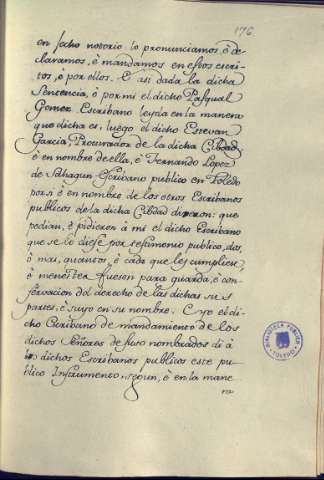 176.
en fecho notorio lo pronunciamos, è de-
claramos, è mandamos en estos escri-
tos, è por ellos. E asi dada la dicha
Sentencia, è por mi el dicho Pasqual
Gomez Escribano leyda en la manera
que dicha es: luego el dicho Estevan
Garcia, Procurador de la dicha Cibdad
è en nombre de ella, è Fernando Lopez
de Sahagun Escribano publico en Toledo
por si è en nombre de los otros Escribanos
publicos de la dicha Cibdad dixeron: que
pedian, è pidieron à mi el dicho Escribano
que se lo diese por testimonio publico, dos,
ò mas, quantos, è cada que les cumpliere,
è menester fuesen para guarda, è con-
servacion del derecho de las dichas sus
partes, è suyo en su nombre. E yo el di-
cho Escribano de mandamiento de los
dichos Señores de suso nombrados di à
los dichos Escribanos publicos este pu-
blico Instrumento, segun, è en la mane
ra
BIBLIOTECA PUBLICA
TOLEDO